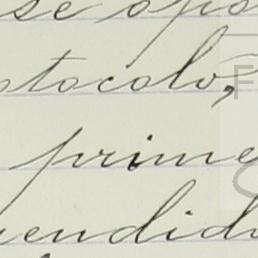 se opo
stocolo,
prime
endid